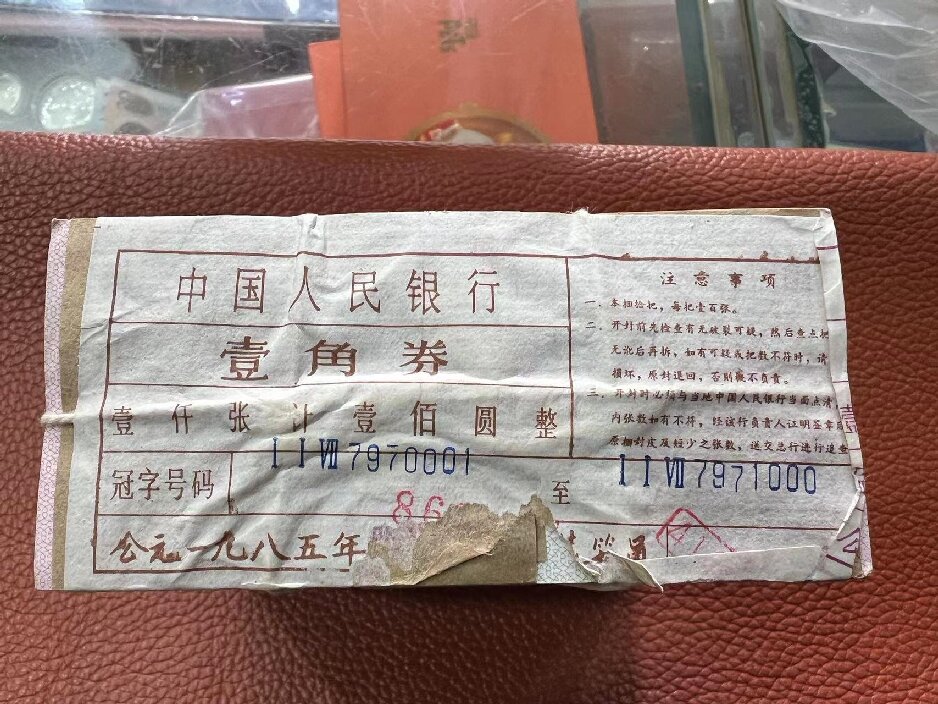 中国人民银行
壹角券
壹仟张计壹佰圆整
冠字号码
I I VIII 7970001
至
I I VIII 7971000
86
公元一九八五年
注意事项
一、本捆拾把，每把壹百张。
二、开封前先检查有无破裂可疑，然后查点把
无讹后再拆，如有可疑或把数不符时，请
损坏，原封退回，否则概不负责。
三、开封时必须与当地中国人民银行当面点清
内张数如有不符，经该行负责人证明签章
原捆封皮及短少之张数，送交总行进行追查